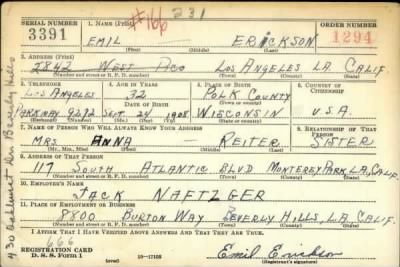 #166 231
SERIAL NUMBER 1. NAME (Print) ORDER NUMBER
3391 EMIL ERICKSON 1294
(First) (Middle) (Last)
2. ADDRESS (Print)
2842 WEST PICO LOS ANGELES LA CALIF.
(Number and street or R. F. D. number) (Town) (County) (State)
3. TELEPHONE 4. AGE IN YEARS 5. PLACE OF BIRTH 6. COUNTRY OF CITIZENSHIP
LOS ANGELES 32 POLK COUNTY
DATE OF BIRTH (Town or county)
PARKWAY 9292 SEPT. 24 1908 WISCONSIN U.S.A.
(Exchange) (Number) (Mo.) (Day) (Yr.) (State or country)
7. NAME OF PERSON WHO WILL ALWAYS KNOW YOUR ADDRESS 8. RELATIONSHIP OF THAT PERSON
MRS. ANNA — REITER SISTER
(Mr., Mrs., Miss) (First) (Middle) (Last)
9. ADDRESS OF THAT PERSON
117 SOUTH ATLANTIC BLVD MONTEREY PARK, LA, CALIF.
(Number and street or R. F. D. number) (Town) (County) (State)
10. EMPLOYER'S NAME
JACK NAFTZGER
11. PLACE OF EMPLOYMENT OR BUSINESS
8800 BURTON WAY BEVERLY HILLS, LA, CALIF.
(Number and street or R. F. D. number) (Town) (County) (State)
I AFFIRM THAT I HAVE VERIFIED ABOVE ANSWERS AND THAT THEY ARE TRUE.
666
REGISTRATION CARD
D. S. S. Form 1 (over) 16—17105 Emil Erickson
(Registrant's signature)
430 Dr Beverly Hills